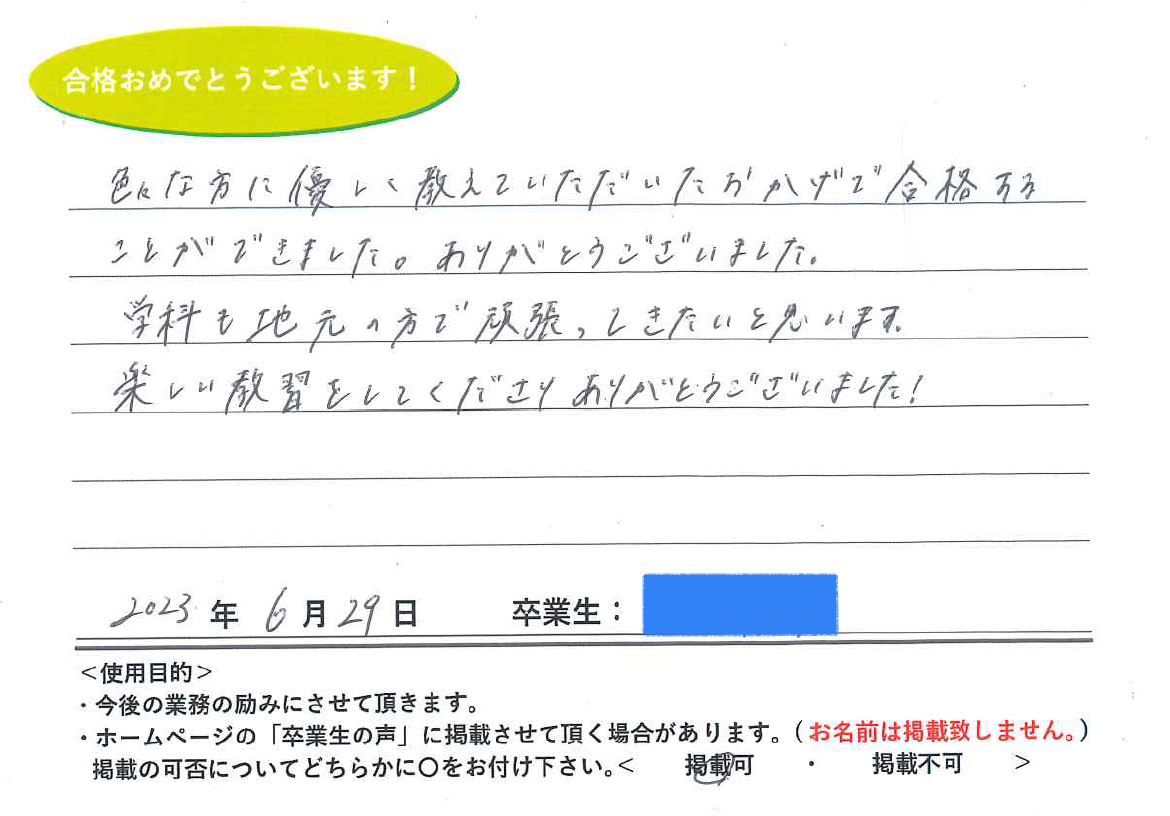 合格おめでとうございます！
色々な方に優しく教えていただいたおかげで合格する
ことができました。ありがとうございました。
学科も地元の方で頑張っていきたいと思います。
楽しい教習をしてくださりありがとうございました！
2023年6月29日 卒業生：
＜使用目的＞
・今後の業務の励みにさせて頂きます。
・ホームページの「卒業生の声」に掲載させて頂く場合があります。（お名前は掲載致しません。）
掲載の可否についてどちらかに〇をお付け下さい。＜ 掲載可 ・ 掲載不可 ＞